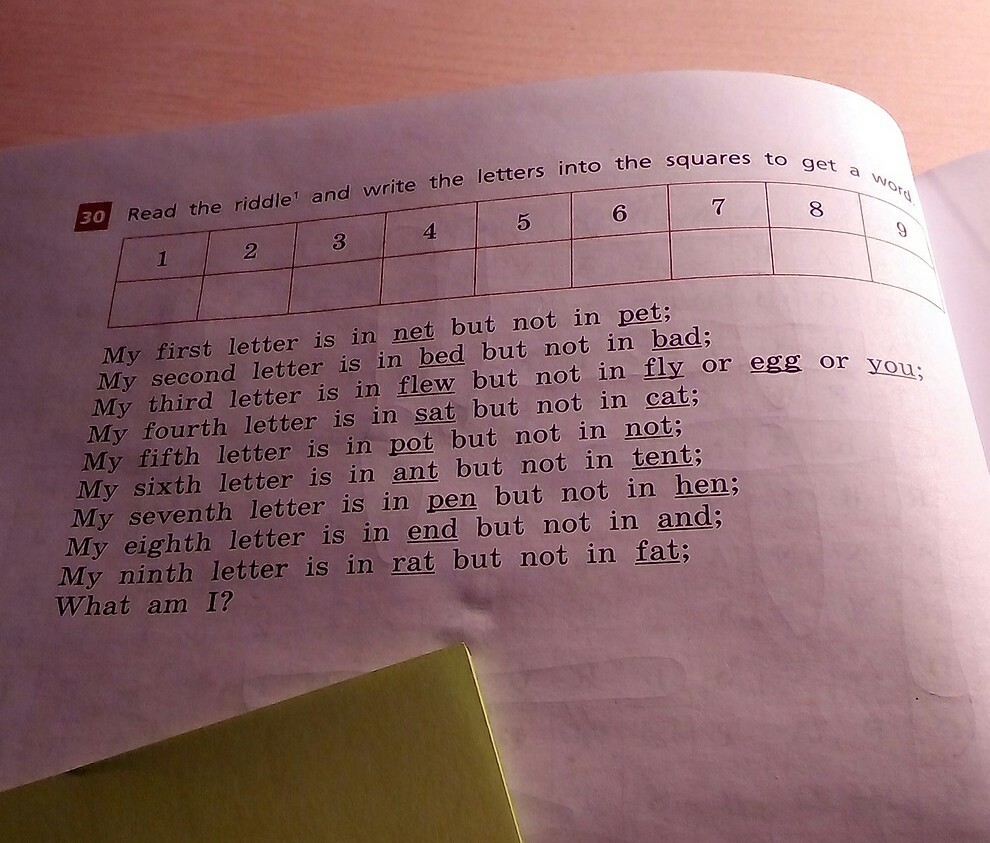 30 Read the riddle¹ and write the letters into the squares to get a word.
1 2 3 4 5 6 7 8 9
My first letter is in net but not in pet;
My second letter is in bed but not in bad;
My third letter is in flew but not in fly or egg or you;
My fourth letter is in sat but not in cat;
My fifth letter is in pot but not in not;
My sixth letter is in ant but not in tent;
My seventh letter is in pen but not in hen;
My eighth letter is in end but not in and;
My ninth letter is in rat but not in fat;
What am I?